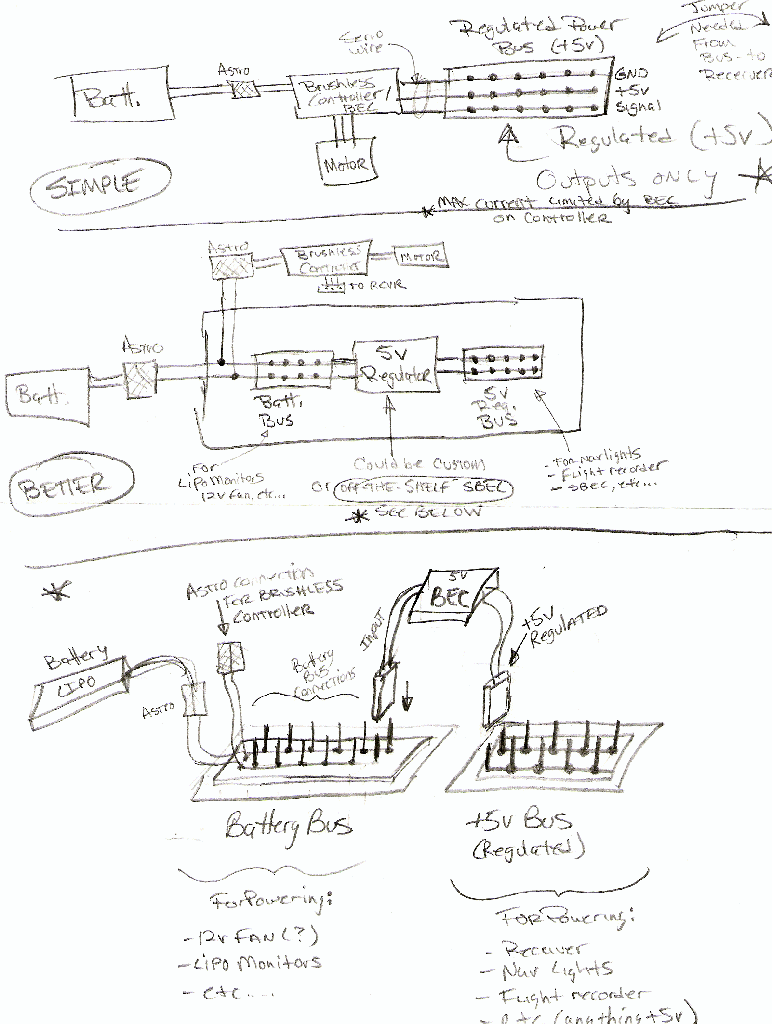 Jumper
Needed
From
Bus-to
Receiver
Servo
wire
Regulated Power
Bus (+5v)
Batt.
Astro
Brushless
Controller/
BEC
GND
+5v
Signal
Motor
Regulated (+5v)
Outputs ONLY
SIMPLE
* MAX current limited by BEC
on Controller
Astro
Brushless
Controller
MOTOR
TO RCVR
Batt.
Astro
Batt.
BUS
5V
Regulator
5V
Reg.
BUS
For
LiPo Monitors
12V fan, etc...
Could be custom
or OFF-THE-SHELF SBEC
* SEE BELOW
- For Nav lights
- Flight recorder
- SBEC, etc...
BETTER
*
Astro connection
FOR BRUSHLESS
Controller
Battery
LIPO
Astro
Battery
BUS
Connections
INPUT
5V
BEC
+5V
REGULATED
Battery Bus
+5v Bus
(Regulated)
For Powering:
- 12v FAN (?)
- LiPo Monitors
- etc....
For Powering:
- Receiver
- Nav Lights
- Flight recorder
- etc (anything +5v)